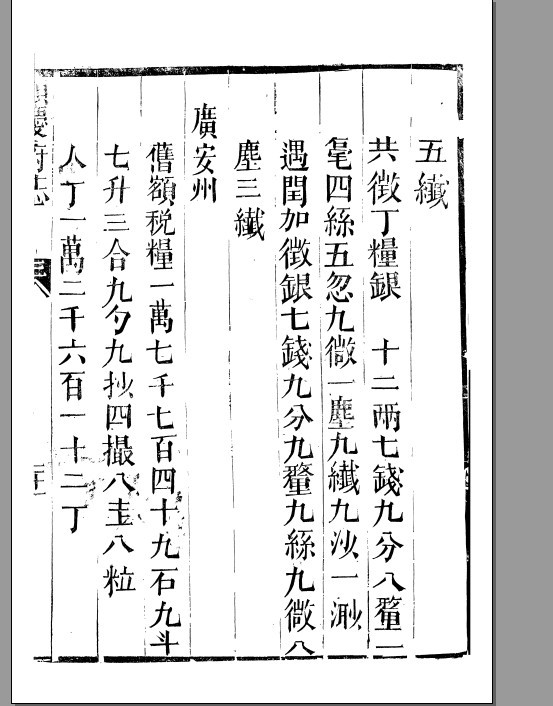 五纖
共徵丁糧銀 十二兩七錢九分八釐一
毫四絲五忽九微一塵九纖九沙一渺
遇閏加徵銀七錢九分九釐九絲九微八
塵三纖
廣安州
舊額税糧一萬七千七百四十九石九斗
七升三合九勺九抄四撮八圭八粒
人丁一萬二千六百一十二丁
慶府志